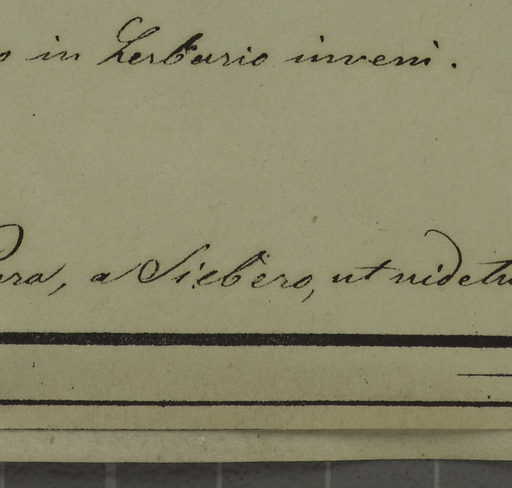 o in herbario inveni.
ra, a Siebero, ut videtu